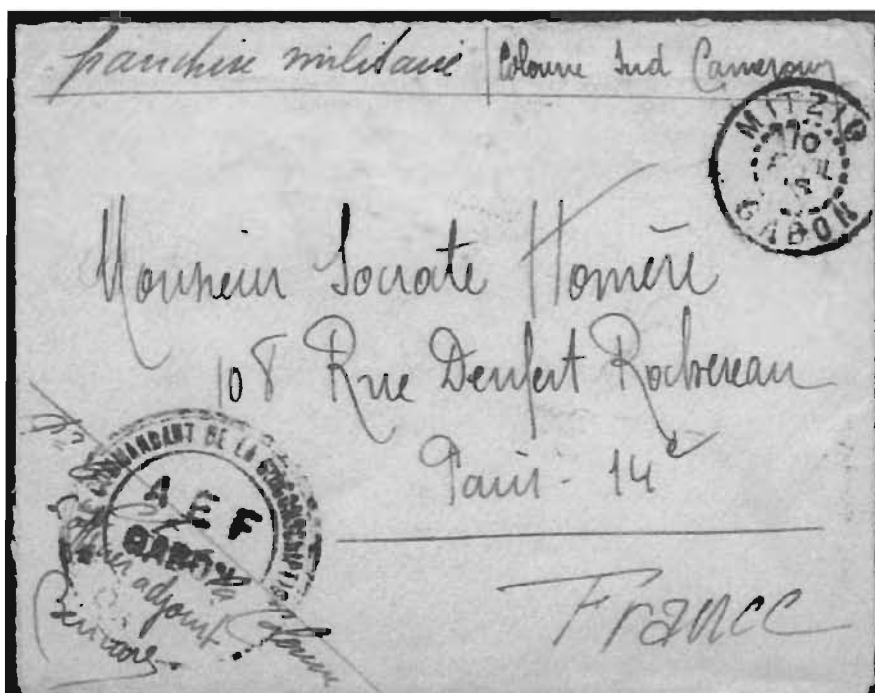 franchise militaire | Colonne Sud Cameroun
MITZIC
10
GABON
Monsieur Socrate Homère
108 Rue Denfert Rochereau
Paris - 14e
France
COMMANDANT DE LA CIRCONSCRIPTION
A E F
GABON
adjoint
Colonne